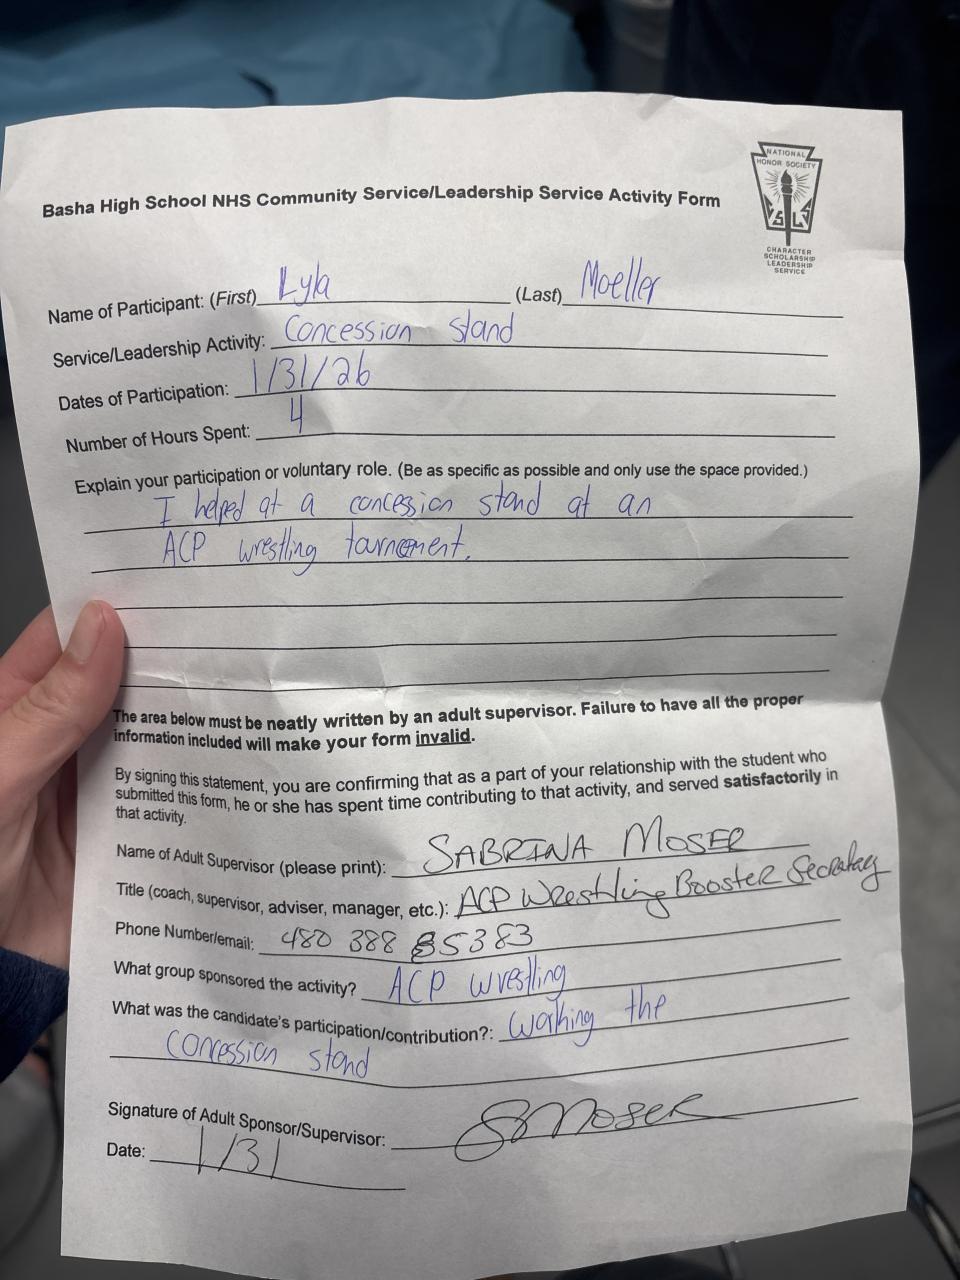 NATIONAL
HONOR SOCIETY
CHARACTER
SCHOLARSHIP
LEADERSHIP
SERVICE
Basha High School NHS Community Service/Leadership Service Activity Form
Name of Participant: (First) Lyla (Last) Moeller
Service/Leadership Activity: Concession stand
Dates of Participation: 1/31/26
Number of Hours Spent: 4
Explain your participation or voluntary role. (Be as specific as possible and only use the space provided.)
I helped at a concession stand at an
ACP wrestling tournement.
The area below must be neatly written by an adult supervisor. Failure to have all the proper
information included will make your form invalid.
By signing this statement, you are confirming that as a part of your relationship with the student who
submitted this form, he or she has spent time contributing to that activity, and served satisfactorily in
that activity.
Name of Adult Supervisor (please print): SABRINA MOSER
Title (coach, supervisor, adviser, manager, etc.): ACP Wrestling Booster Secretary
Phone Number/email: 480 388 5383
What group sponsored the activity? ACP wrestling
What was the candidate's participation/contribution?: working the
concession stand
Signature of Adult Sponsor/Supervisor: S Moser
Date: 1/31